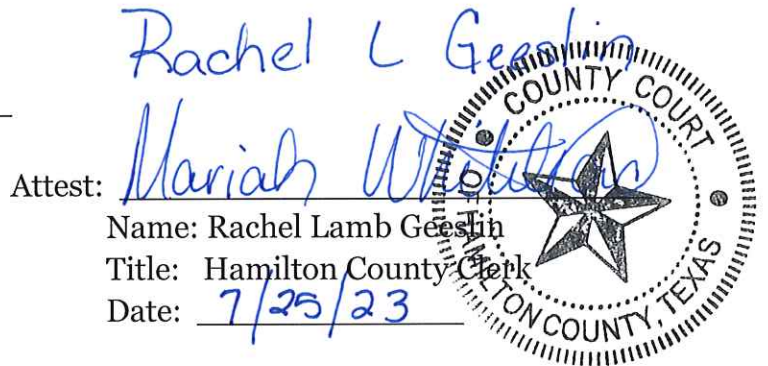 Rachel L Geeslin
Attest: Mariah
Name: Rachel Lamb Geeslin
Title: Hamilton County Clerk
Date: 7/25/23
COUNTY COURT
HAMILTON COUNTY, TEXAS